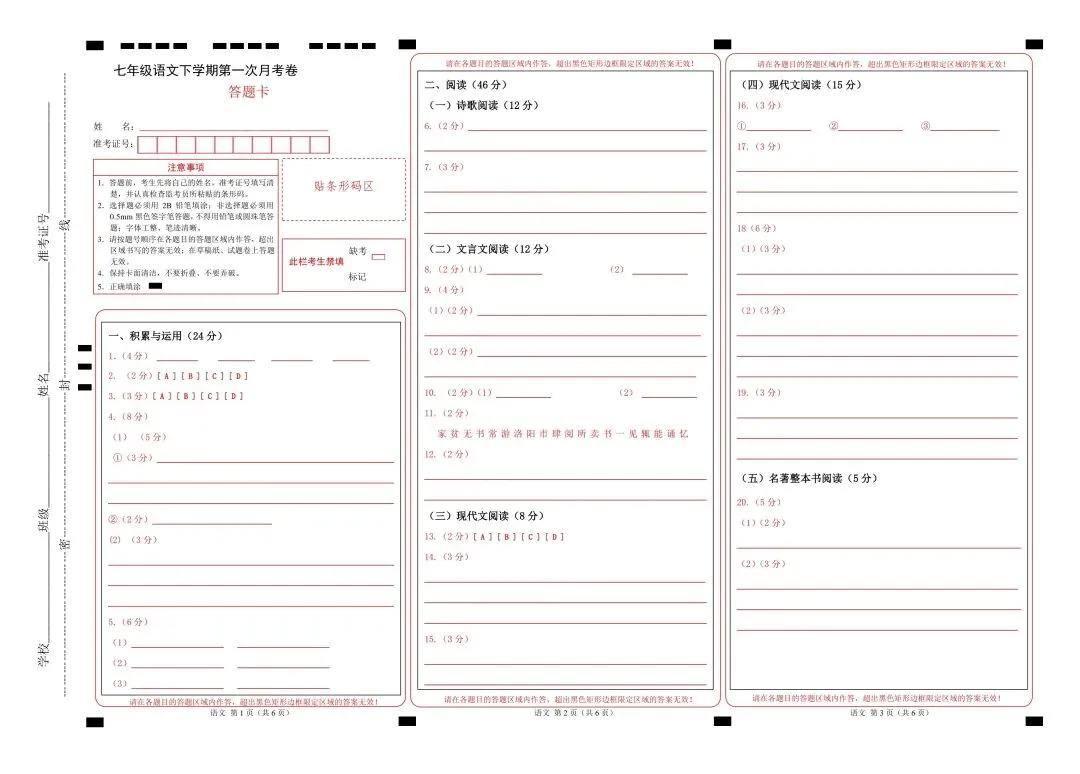 七年级语文下学期第一次月考卷
答题卡
姓 名：
准考证号：
注意事项
1．答题前，考生先将自己的姓名，准考证号填写清
楚，并认真检查监考员所粘贴的条形码。
2．选择题必须用 2B 铅笔填涂；非选择题必须用
0.5mm 黑色签字笔答题，不得用铅笔或圆珠笔答
题；字体工整、笔迹清晰。
3．请按题号顺序在各题目的答题区域内作答，超出
区域书写的答案无效；在草稿纸、试题卷上答题
无效。
4．保持卡面清洁，不要折叠、不要弄破。
5．正确填涂
贴条形码区
此栏考生禁填
缺考
标记
学校 班级 姓名 准考证号
密 封 线
一、积累与运用（24 分）
1.（4 分）
2. （2 分）[ A ] [ B ] [ C ] [ D ]
3.（3 分）[ A ] [ B ] [ C ] [ D ]
4.（8 分）
（1） （5 分）
①（3 分）
②（2 分）
（2） （3 分）
5.（6 分）
（1）
（2）
（3）
请在各题目的答题区域内作答，超出黑色矩形边框限定区域的答案无效！
语文 第 1 页（共 6 页）
请在各题目的答题区域内作答，超出黑色矩形边框限定区域的答案无效！
二、阅读（46 分）
（一）诗歌阅读（12 分）
6.（2 分）
7.（3 分）
（二）文言文阅读（12 分）
8.（2 分）（1） （2）
9.（4 分）
（1）（2 分）
（2）（2 分）
10. （2 分）（1） （2）
11.（2 分）
家 贫 无 书 常 游 洛 阳 市 肆 阅 所 卖 书 一 见 辄 能 诵 忆
12.（2 分）
（三）现代文阅读（8 分）
13.（2 分）[ A ] [ B ] [ C ] [ D ]
14.（3 分）
15.（3 分）
请在各题目的答题区域内作答，超出黑色矩形边框限定区域的答案无效！
语文 第 2 页（共 6 页）
请在各题目的答题区域内作答，超出黑色矩形边框限定区域的答案无效！
（四）现代文阅读（15 分）
16.（3 分）
① ② ③
17.（3 分）
18（6 分）
（1）（3 分）
（2）（3 分）
19.（3 分）
（五）名著整本书阅读（5 分）
20.（5 分）
（1）（2 分）
（2）（3 分）
请在各题目的答题区域内作答，超出黑色矩形边框限定区域的答案无效！
语文 第 3 页（共 6 页）